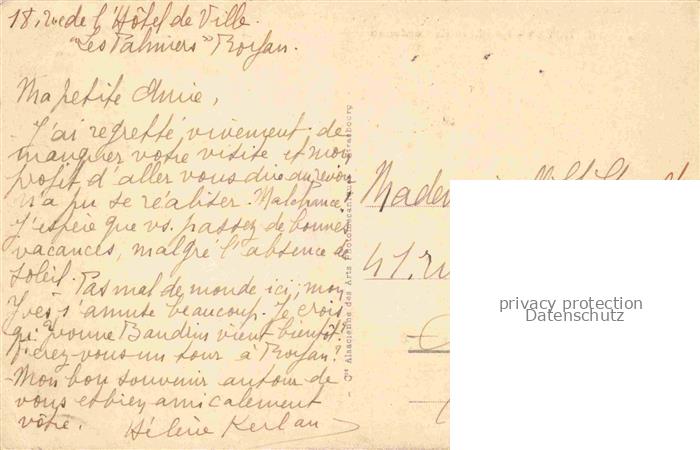 18, rue de l'Hôtel de Ville.
"Les Palmiers" Royan.
Ma petite Amie,
J'ai regretté vivement de
manquer votre visite et mon
projet d'aller vous dire au revoir
n'a pu se réaliser. Malchance!
J'espère que vs. passez de bonnes
vacances, malgré l'absence de
soleil.
Pas mal de monde ici; mon
Yves s'amuse beaucoup. Je crois
qu'Yvonne Baudin vient bientôt.
Ferez-vous un tour à Royan?
Mon bon souvenir autour de
vous et bien amicalement
vôtre.
Hélène Kerlau
- Cie Alsacienne des Arts Photomécaniques, Strasbourg
41, ru
privacy protection
Datenschutz